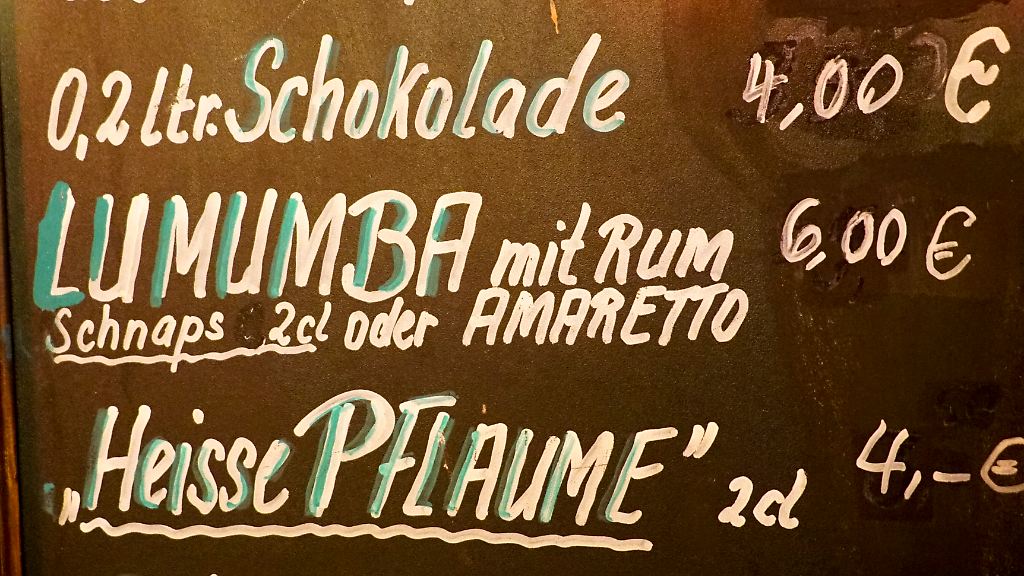 0,2 ltr. Schokolade 4,00 €
LUMUMBA mit RUM 6,00 €
Schnaps 2cl oder AMARETTO
„Heisse PFLAUME" 2cl 4,- €